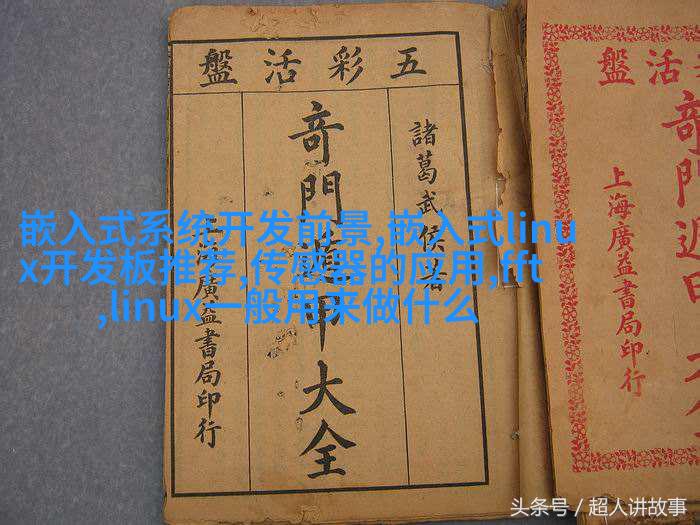 五彩活盤
諸葛武侯著
竒門遁甲大全
上海廣益書局印行
嵌入式系统开发前景,嵌入式linu
x开发板推荐,传感器的应用,fft
,linux一般用来做什么
活盤
竒門遁甲
上海廣益書局印行
头条号 / 超人讲故事